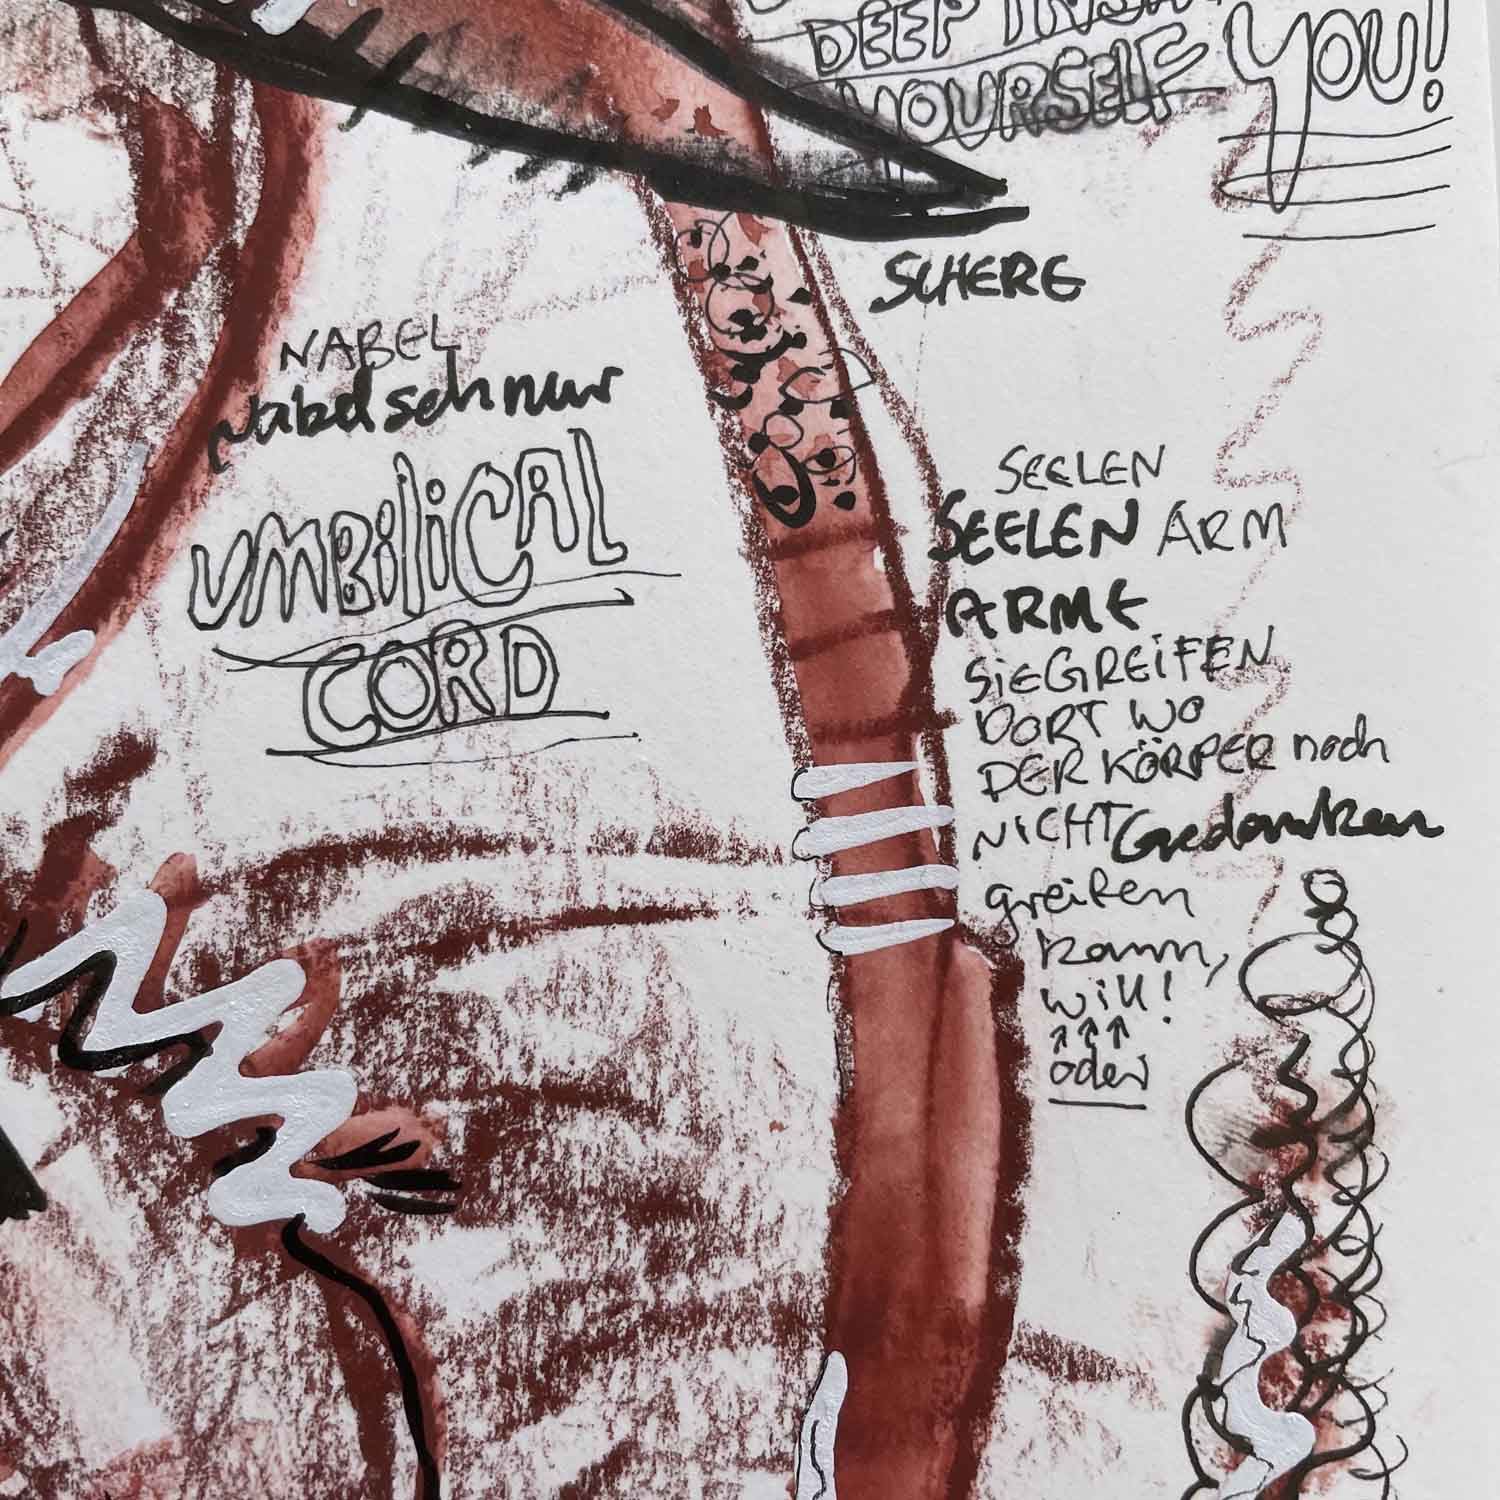 DEEP INSIDE
YOURSELF YOU!
SCHERE
NABEL
Nabelschnur
UMBILICAL
CORD
SEELEN
SEELEN ARM
ARME
SIE GREIFEN
DORT WO
DER KÖRPER noch
NICHT Gedanken
greifen
kann,
will!
↑↑↑
oder